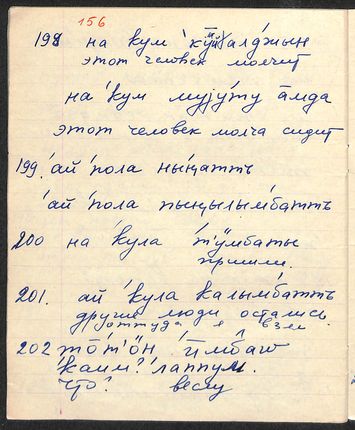 156
198 на ʹкум ʹкӱй(алд́жын
этот человек молчит
на ʹкум муjу́ту а̄мда
этот человек молча сидит
199. ʹай ʹпола ны́ңаттъ
ʹай ʹпола пыңылы́мбаттъ
200 на ʹкула ʹт'ӱмбаты
пришли.
201. ай ʹкула калымба́ттъ
другие люди остались.
оттуда я взял
202 то̄т'о̄н ӣмбаw
ʹкаим? ʹлаппум.
что? весну